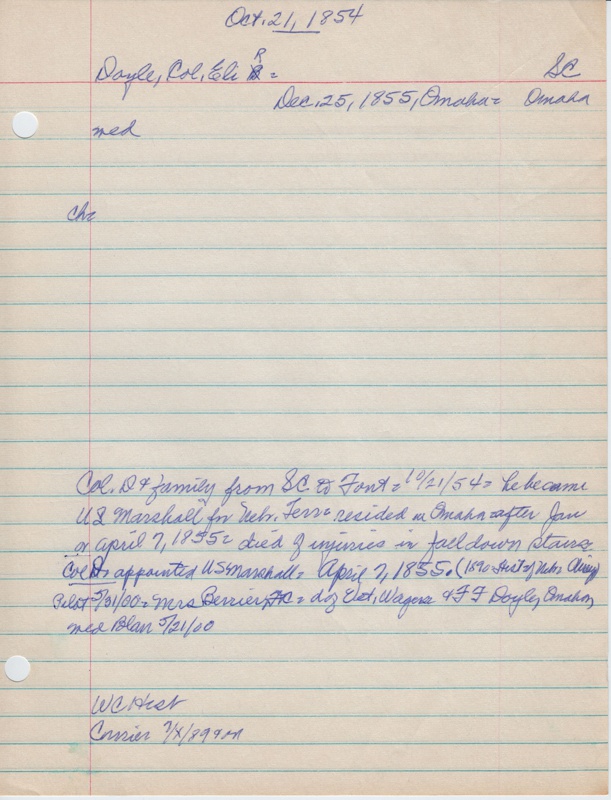 Oct. 21, 1854
Doyle, Col. Eli R = SC
Dec. 25, 1855, Omaha = Omaha
med
ch=
Col. D & family from SC to Font = 10/21/54 = he became
US Marshall for Nebr. Terr = resided in Omaha after Jan
or April 7, 1855 = died of injuries in fall down stairs
Col D = appointed US Marshall = April 7, 1855 = (1890 Hist of Nebr
Pilot 5/31/00 = Mrs Berrier, = & F F Doyle, Omaha
med Blair 5/21/00
WC Hist
Courier